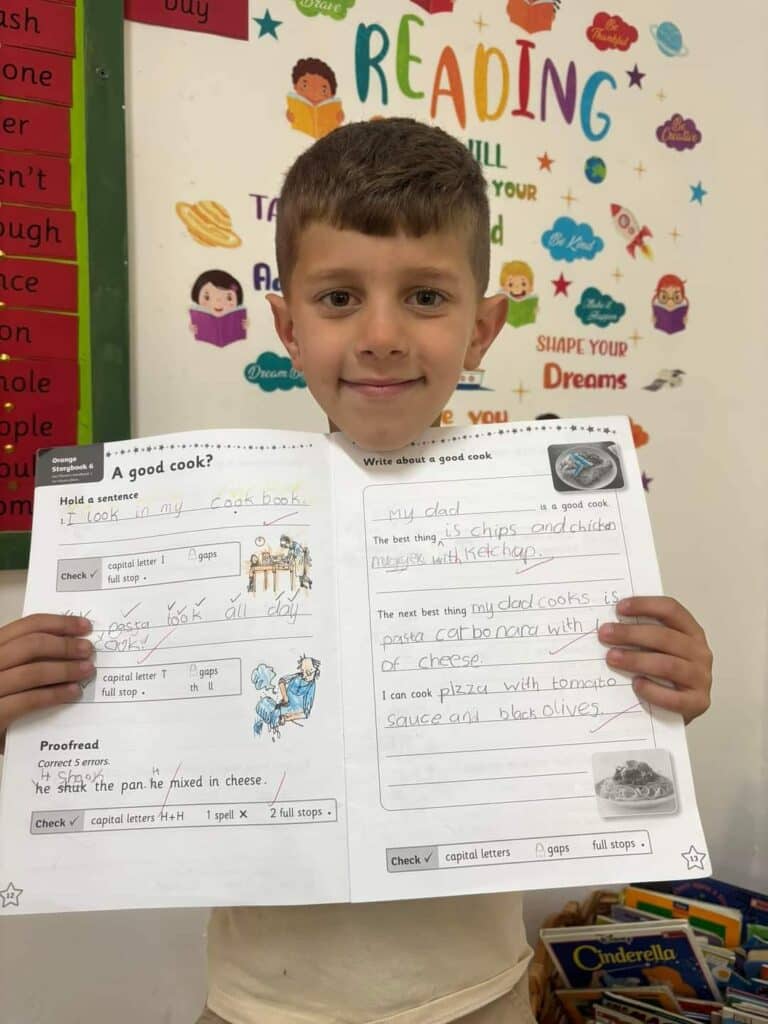 buy
ash
one
er
sn't
ough
nce
on
hole
ople
oul
om
Brave
Be Thankful
READING
Be Creative
YOUR
Be Kind
SHAPE YOUR
Dreams
Dream
YOU
Orange
Storybook 6
A good cook?
Hold a sentence
1. I look in my cook book.
Check ✓ capital letter I gaps
full stop .
pasta took all day
cook!
capital letter T gaps
full stop . th ll
Proofread
Correct 5 errors.
H Shook H
he shuk the pan. he mixed in cheese.
Check ✓ capital letters H+H 1 spell ✗ 2 full stops .
12
Write about a good cook
my dad is a good cook.
The best thing is chips and chicken
with ketchap.
The next best thing my dad cooks is
pasta carbonara with
of cheese.
I can cook pizza with tomato
sauce and black olives.
Check ✓ capital letters gaps full stops .
13
Cinderella